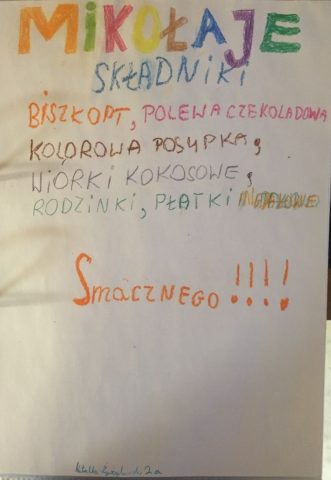 MIKOŁAJE
SKŁADNIKI
BISZKOPT, POLEWA CZEKOLADOWA
KOLOROWA POSYPKA,
WIÓRKI KOKOSOWE,
RODZINKI, PŁATKI
SMACZNEGO !!!!
2a